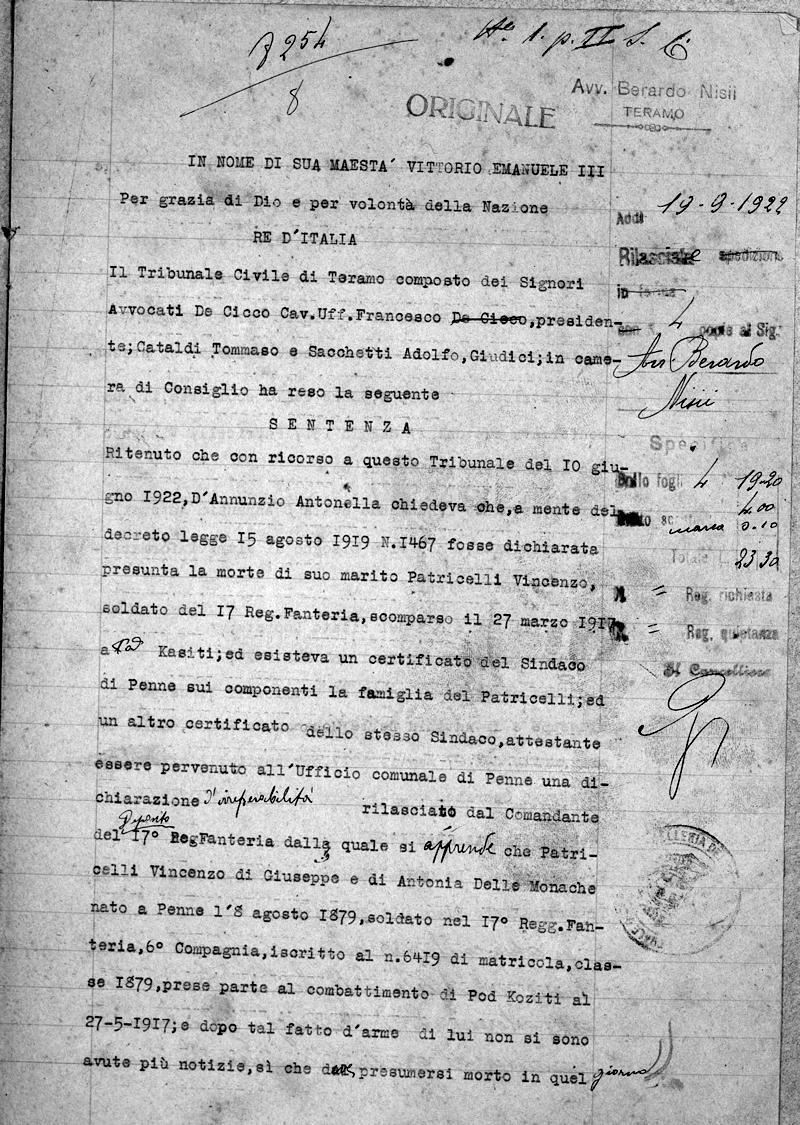 254
8
1. p. II S. C.
ORIGINALE
Avv. Berardo Nisii
TERAMO
IN NOME DI SUA MAESTA´ VITTORIO EMANUELE III
Per grazia di Dio e per volontà della Nazione
RE D´ITALIA
Il Tribunale Civile di Teramo composto dei Signori
Avvocati De Cicco Cav.Uff.Francesco De Cicco,presiden-
te;Cataldi Tommaso e Sacchetti Adolfo,Giudici;in came-
ra di Consiglio ha reso la seguente
S E N T E N Z A
Ritenuto che con ricorso a questo Tribunale del IO giu-
gno I922,D´Annunzio Antonella chiedeva che,a mente del
decreto legge I5 agosto I9I9 N.I467 fosse dichiarata
presunta la morte di suo marito Patricelli Vincenzo,
soldato del I7 Reg.Fanteria,scomparso il 27 marzo I9I7
a Pod Kasiti;ed esisteva un certificato del Sindaco
di Penne sui componenti la famiglia del Patricelli;ed
un altro certificato dello stesso Sindaco,attestante
essere pervenuto all´Ufficio comunale di Penne una di-
chiarazione d'irreperibilità rilasciato dal Comandante
Deposito
del I7° RegFanteria dalla quale si apprende che Patri-
celli Vincenzo di Giuseppe e di Antonia Delle Monache
nato a Penne l´8 agosto I879,soldato nel I7° Regg.Fan-
teria,6° Compagnia,iscritto al n.64I9 di matricola,clas-
se I879,prese parte al combattimento di Pod Koziti al
27-5-I9I7;e dopo tal fatto d´arme di lui non si sono
avute più notizie,sì che presumersi morto in quel giorno
Addì 19-9-1922
Rilasciate spedizione
in forma
4 copie al Sig.
Avv. Berardo
Nisii
Specifica
Bollo fogli 4 19.20
4.00
marca 0.10
Totale L. 23,30
N = Reg. richiesta
N = Reg. quietanza
Il Cancelliere